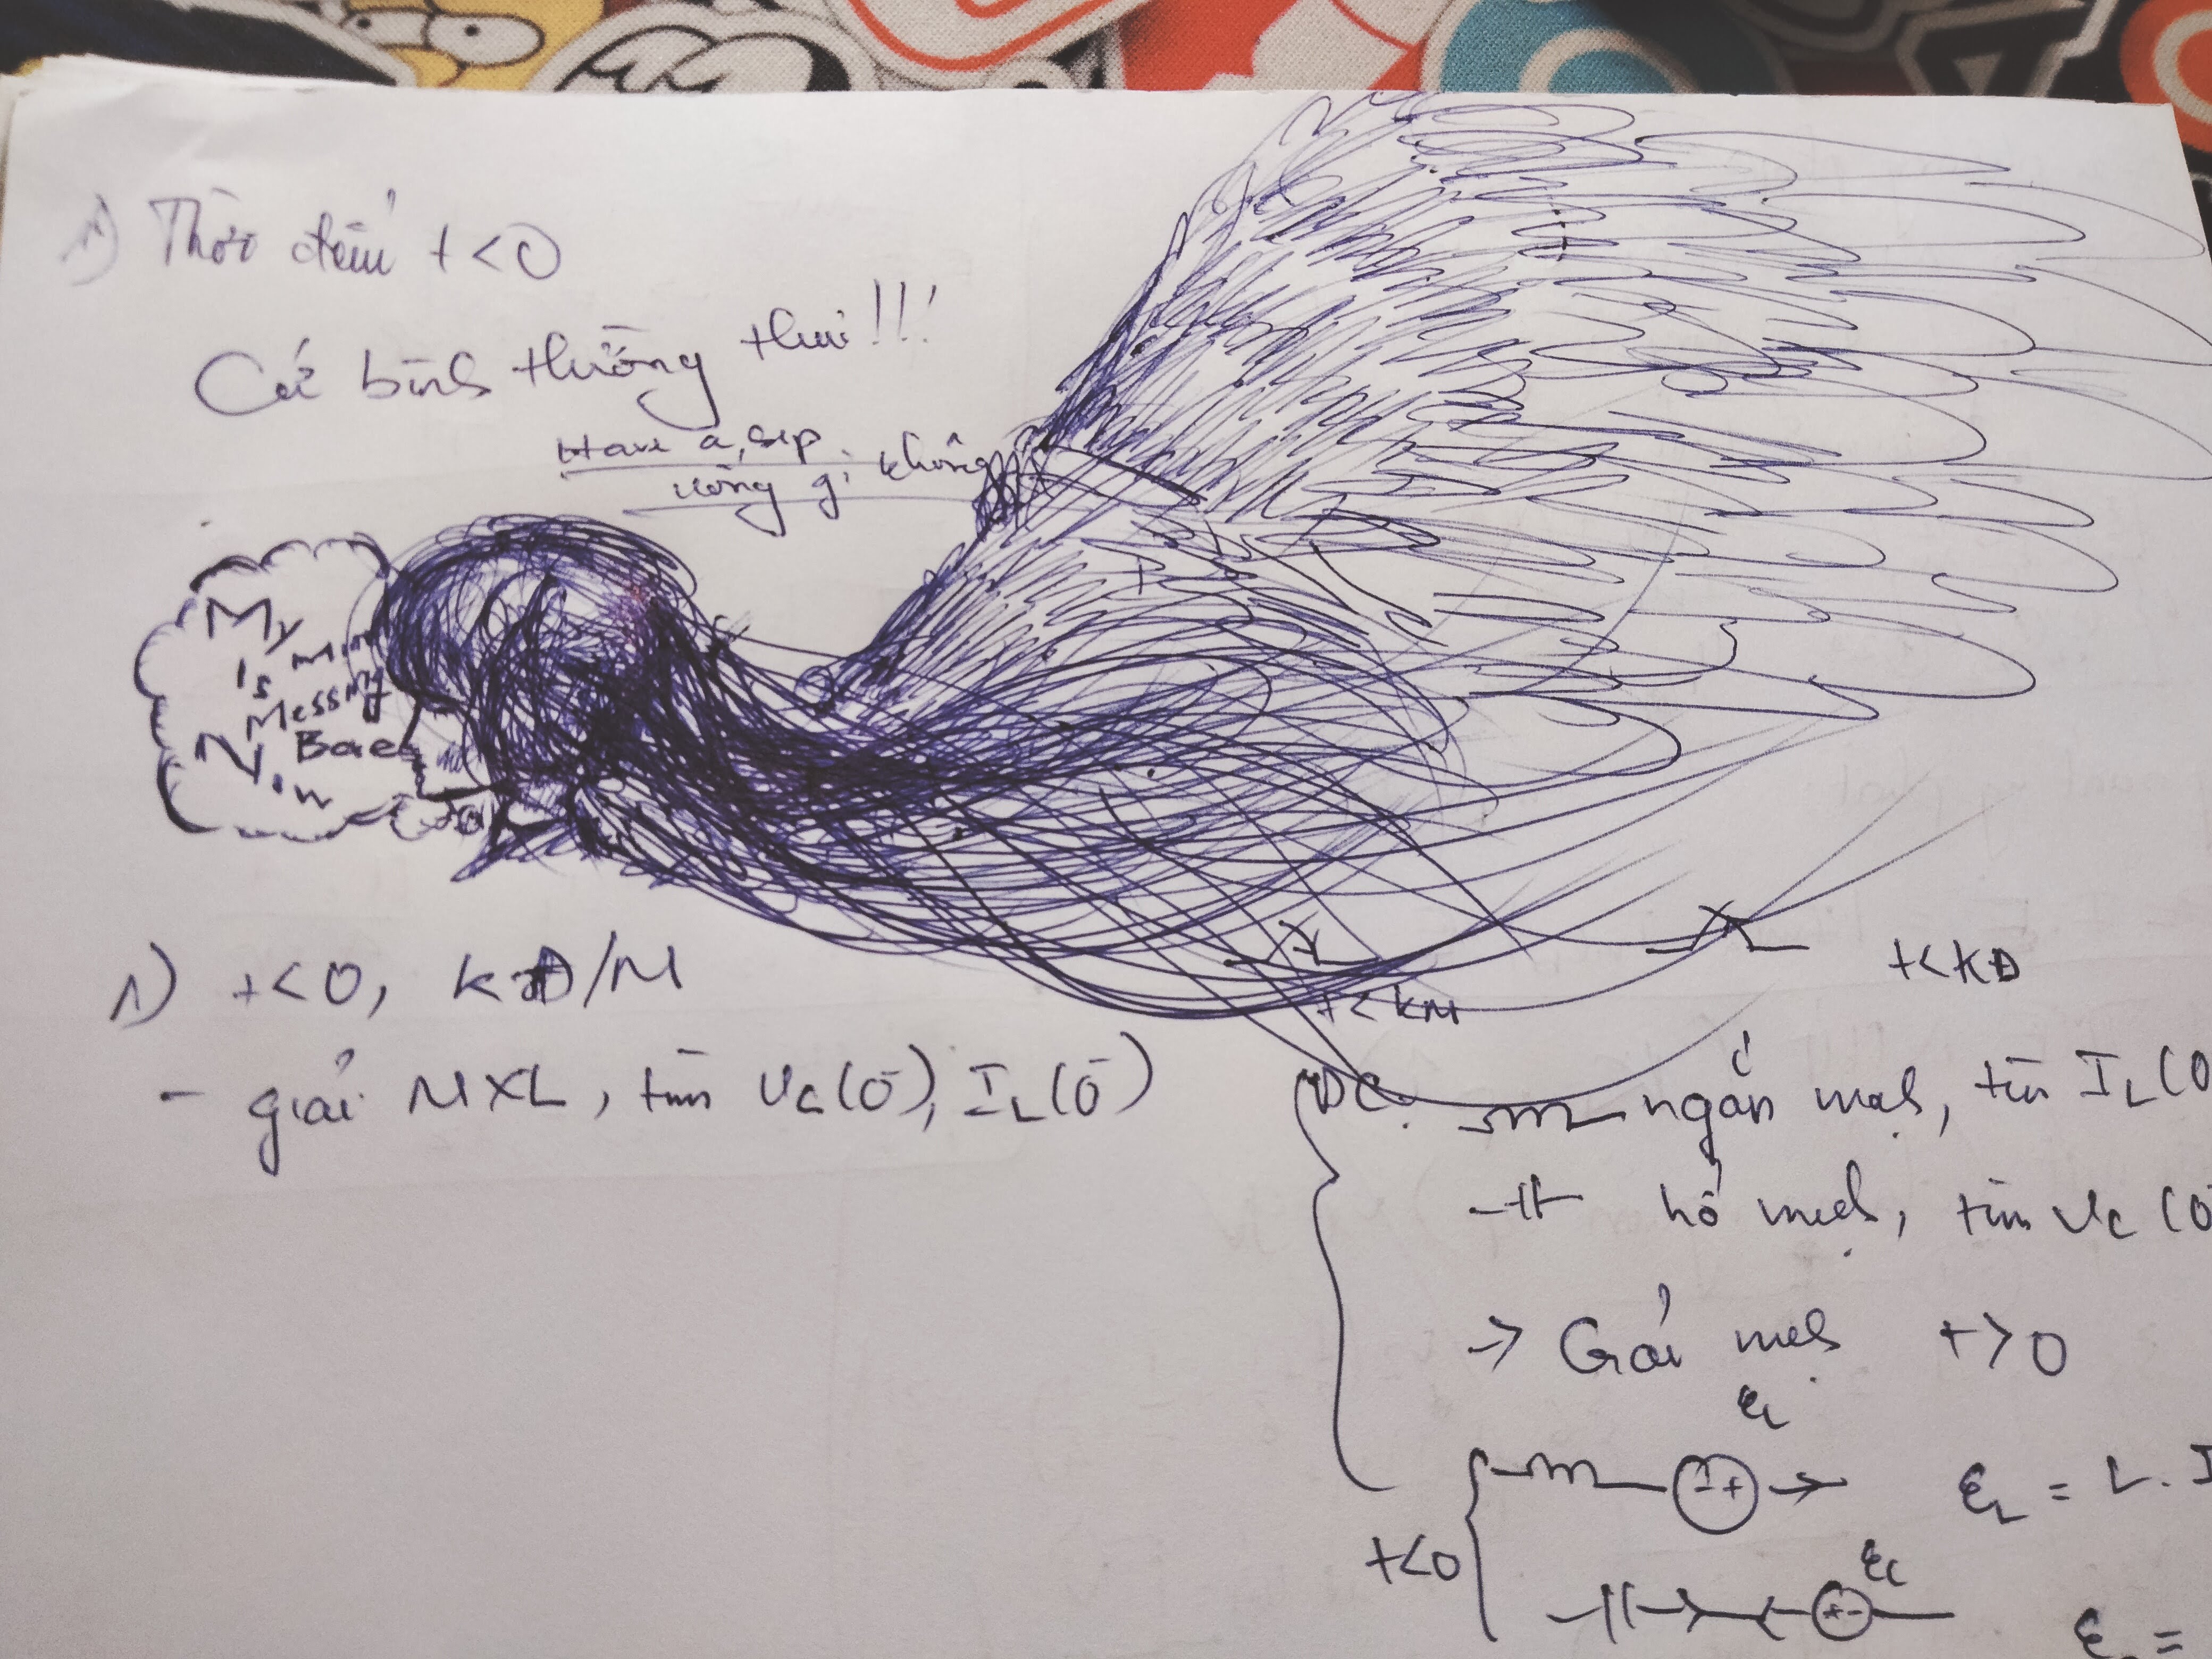 1) Thời điểm t<0
Cứ bình thường thui!!!
Have a sip
uống gì không
My Mind
Is
Messing
Bae
Now
t<KM
t<KĐ
1) t<0, KĐ/M
- giải MXL, tìm Uc(0-), IL(0-)
DC: ngắn mạch, tìm IL(0
hở mạch, tìm Uc(0
→ Giải mạch t>0
εL
-+
εL = L.I
t<0
εc
+-